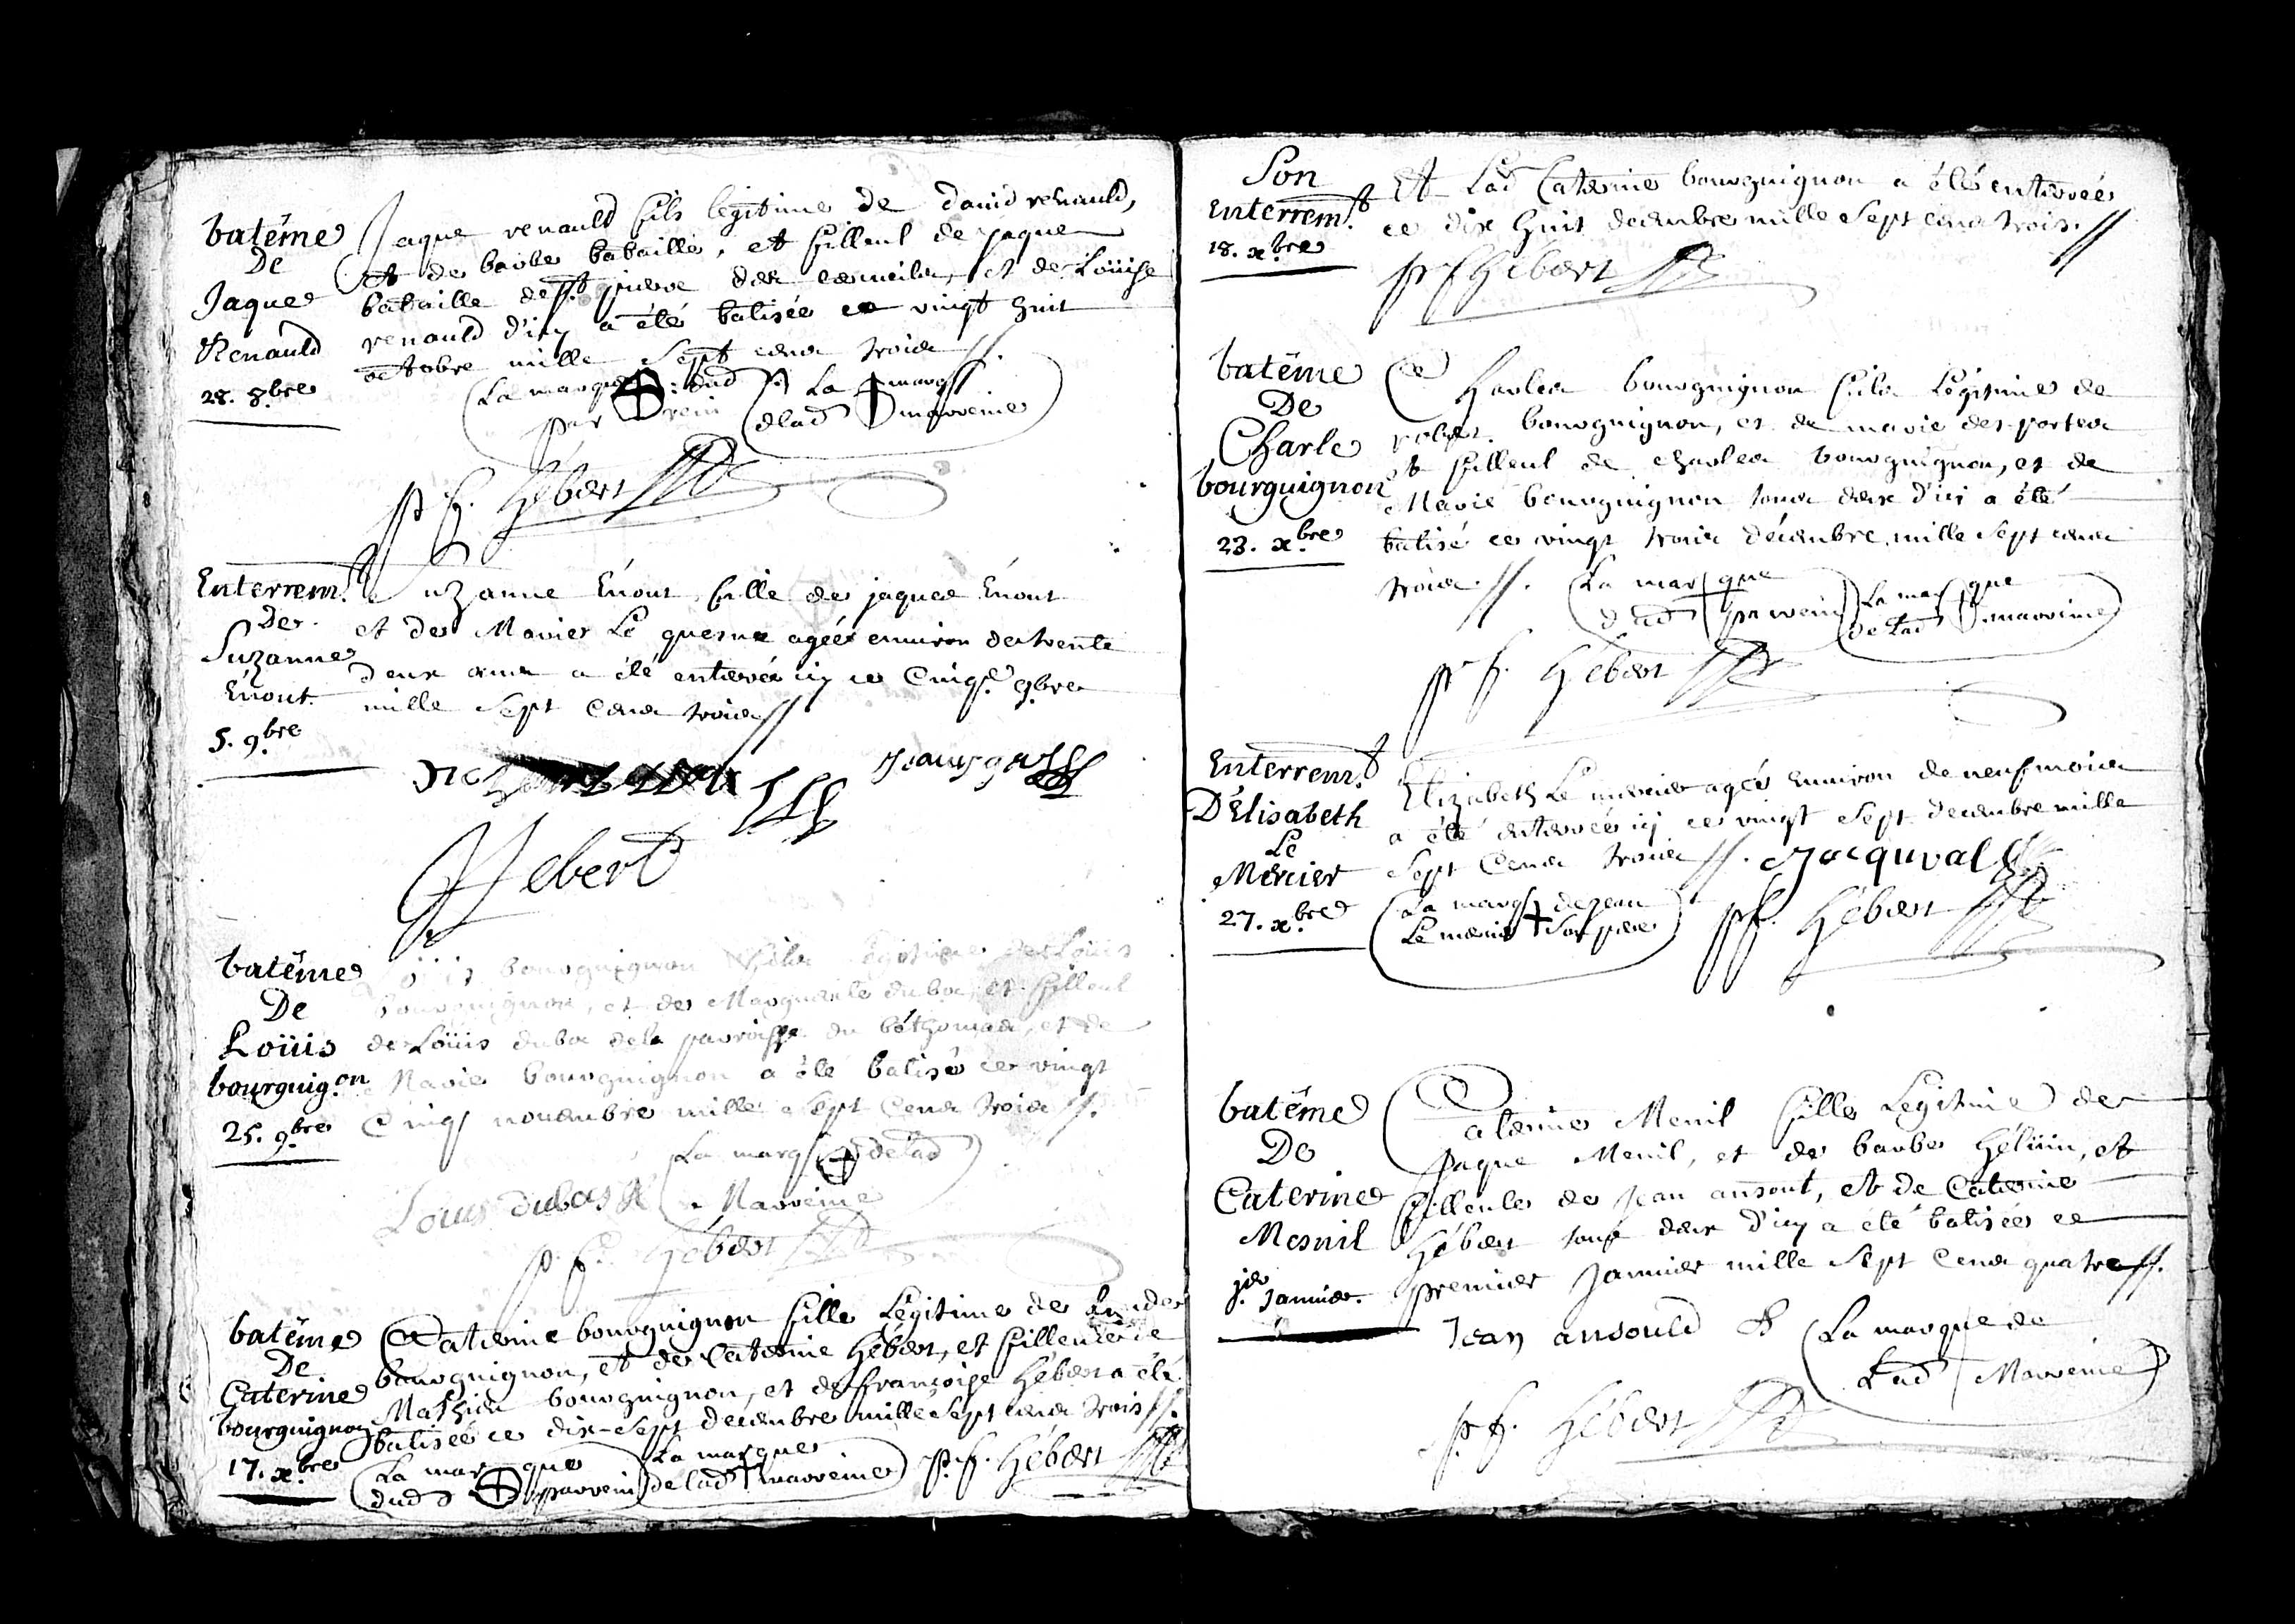 batême
De
Jaque
Renauld
28. 8.bre
Jaque renauld fils legitime de david renauld,
et de barbe bataille, et filleul de jaque
bataille de st. pierre des cercueils, et de Loüise
renauld d'icy a été batisée ce vingt huit
octobre mille sept cens trois //.
(La marque dud La marq
parrein delad marreine)
p f. Hébert
Enterremt.
De
Suzanne
Énout
5. 9.bre
Suzanne Énout fille de jaques Énout
et de Marie Le quesne agée environ de trente
deux ans a été enterrée icy ce Cinqe. 9.bre
mille sept cens trois //
Hebert
batême
De
Loüis
bourguig.on
25. 9.bre
bourguignon fils légitime de Loüis
bourguignon, et de Marguerite dubos, et filleul
de Loüis dubos de la parroisse du bôthomas, et de
Marie bourguignon a été batisé ce vingt
Cinq novembre mille sept cens trois //.
La marq delad
Marreine
Louis dubos
p. f. Hébert
batême
De
Caterine
bourguignon
17. x.bre
Caterine bourguignon fille Légitime de
bourguignon, et de Caterine Hébert, et filleule de
Mathieu bourguignon, et de françoise Hébert a été
batisée ce dix-sept decembre mille sept cens trois //.
(La marque La marque
dud parrein) delad marreine) p. f. Hébert
Son
Enterremt.
18. x.bre
Et Lad Caterine bourguignon a été enterrée
ce dix huit decembre mille sept cens trois. //
p f Hébert
batême
De
Charle
bourguignon
23. x.bre
Charles bourguignon fils Légitime de
robert bourguignon, et de marie des-portes
et filleul de charles bourguignon, et de
Marie bourguignon tous deux d'ici a été
batisé ce vingt trois décembre mille sept cens
trois //. (La marque La marque
dud parrein) delad marreine)
p f. Hébert
Enterremt.
D'Élisabeth
Le
Mercier
27. x.bre
Elizabeth Le mercier agée environ de neuf mois
a été enterrée icy ce vingt sept decembre mille
sept cens trois //.
(La marq de jean
Le mercier son pere) p f. Hébert
batême
De
Caterine
Mesnil
jer. Janvier.
Caterine Menil fille Légitime de
Jaque Menil, et de barbe Hélüin, et
filleule de Jean ansout, et de Caterine
Hébert tous deux d'icy a été batisée ce
premier Janvier mille sept cens quatre //.
Jean ansould (La marque de
Lad Marreine)
p. f. Hébert